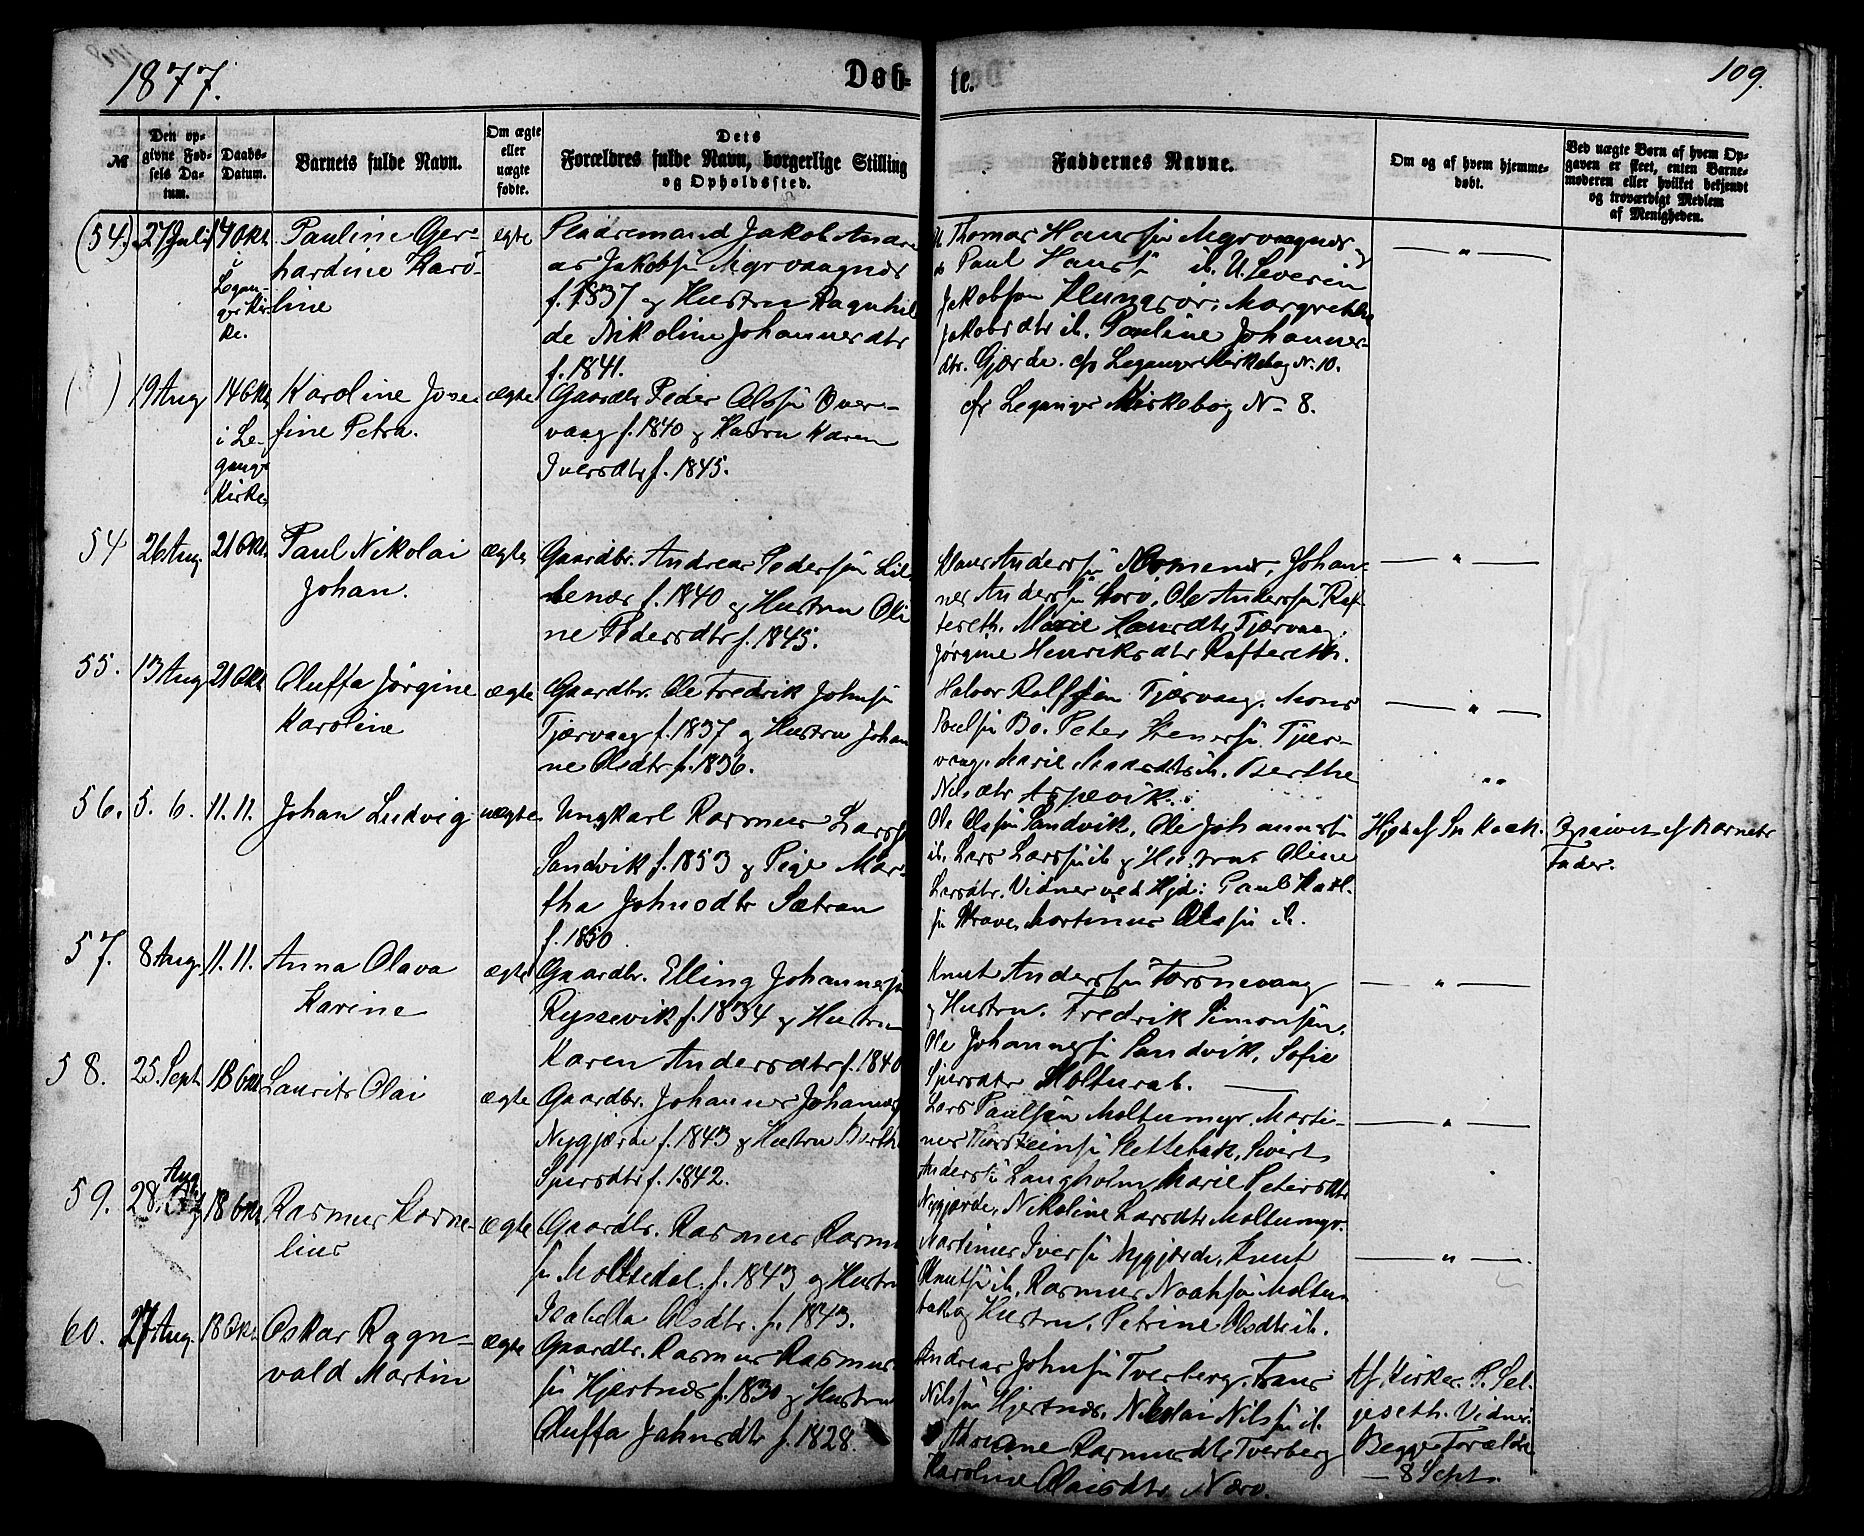 1877.
Døb-
te.
109.
№
Den op-
givne Fød-
sels Da-
tum.
Daabs-
Datum.
Barnets fulde Navn.
Om ægte
eller
uægte
fødte.
Dets
Forældres fulde Navn, borgerlige Stilling
og Opholdssted.
Faddernes Navne.
Om og af hvem hjemme-
døbt.
Ved uægte Børn af hvem Op-
gaven er skeet, enten Barne-
moderen eller hvilket bekjendt
og troværdigt Medlem
af Menigheden.
(54.)
27 Juli
14 Okt.
i
Legan-
ger Kir-
ke.
Pauline Ger-
hardine Karo-
line
ægte
Pladsemand Jakob Andre
as Jakobsøn Myrvaagnes
f. 1837 og Hustru Ragnhil
de Nikoline Johannesdtr
f. 1841.
Thomas Hanssøn Myrvaagnes
Paul Hanssøn ib. U. Severin
Jakobsøn Klungsør, Margrethe
Jakobsdtr ib. Pauline Johannes-
dtr. Gjærde. cfr Leganger Kirkebog Nr. 10.
— " —
( )
19 Aug
14 Okt.
i Le-
ganger
Kirke
Karoline Jose
fine Petra.
ægte
Gaardbr. Peder Olssøn Over-
vaag f. 1840 og Hustru Karen
Iversdtr f. 1845.
cfr Leganger Kirkebog No 8.
54
26 Aug.
21 Okt.
Paul Nikolai
Johan.
ægte
Gaardbr. Andreas Pederssøn Lil-
lenæs f. 1840 og Hustru Oli
ne Pedersdtr f. 1845.
Hans Anderssøn Nomenes, Johan-
nes Anderssøn Korø, Ole Anderssøn Raf-
tereth. Marie Hansdtr Tjærvaag,
Jørgine Henriksdtr Raftereth.
— " —
55.
13 Aug
21 Okt
Oluffa Jørgine
Karoline
ægte
Gaardbr. Ole Fredrik Johnsøn
Tjærvaag f. 1837 og Hustru Johan
ne Olsdtr f. 1836.
Halvor Rolfsøn Tjærvaag. Mons
Poulsøn Bø. Peter Stenersøn Tjær-
vaag. Marie Madsdtr ib. Berthe
Nilsdtr Aspevik.
— " —
56.
5. 6.
11. 11.
Johan Ludvig
uægte
Ungkarl Rasmus Larss.
Sandvik f. 1853 og Pige Mar-
tha Johnsdtr Sætran
f. 1850
Ole Olssøn Sandvik, Ole Johannessøn
ib. Lars Larssøn ib og Hustru Oline
Larsdtr. Vidner ved Hjd: Paul Karl-
søn Kragenes, Martinus Olssøn ib.
Hjd af Sn Koch.
Opgivet af Barnets
Fader.
57.
8 Aug.
11. 11.
Anna Olava
Karine
ægte
Gaardbr. Elling Johannessøn
Ryssevik f. 1834 og Hustru
Karen Andersdtr f. 1840
Knut Anderssøn Torsnevaag
og Hustru. Fredrik Simonsøn.
Ole Johannessøn Sandvik, Sofie
Sjursdtr Moltubak.
— " —
58.
25. Sept
18 Okt
Laurits Olai
ægte
Gaardbr. Johannes Johanness
Nygjærde f. 1843 og Hustru Berthe
Sjursdtr f. 1842.
Lars Paulsøn Moltumyr. Marti-
nus Thorsteinsøn Slettebak, Sivert
Anderssøn Langholm, Marie Petersdtr
Nygjærde, Nikoline Larsdtr Moltumyr.
— " —
59.
28. Aug.
18 Okt.
Rasmus Korne-
lius
ægte
Gaardbr. Rasmus Rasmus
søn Moltudal. f. 1843 og Hustru
Isabella Olsdtr. f. 1843.
Martinus Iversøn Nygjærde, Knut
Knutsøn ib, Rasmus Noahsøn Moltu-
bak og Hustru, Petrine Olsdtr ib.
— " —
60.
27 Aug.
18 Okt.
Oskar Ragn-
vald Martin
ægte
Gaardbr. Rasmus Rasmus
søn Hjertnæs f. 1830 og Hustru
Oluffa Johnsdtr f. 1828.
Andreas Johnsøn Tverberg, Frans
Nilsøn Hjertnæs, Nikolai Nilsøn ib.
Adriane Rasmusdtr Tverberg
Karoline Olaisdtr Nærø.
Af Kirkes. P. Sel-
geseth. Vidner
Begge Forældre
— 8 Sept.